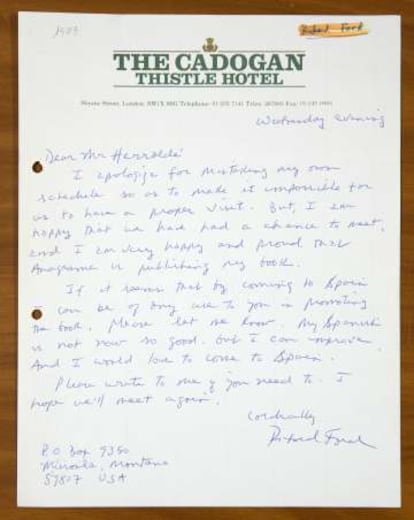 1989
Richard Ford
THE CADOGAN
THISTLE HOTEL
Sloane Street, London, SW1X 9SG Telephone: 01-235 7141 Telex: 267893 Fax: 01-245 0994
Wednesday evening
Dear Mr Herralde:
I apologize for mistaking my own
schedule so as to make it impossible for
us to have a proper visit. But, I am
happy that we have had a chance to meet,
and I am very happy and proud that
Anagrama is publishing my book.
If it seems that by coming to Spain I
can be of any use to you in promoting
the book, please let me know. My Spanish
is not now so good. but I can improve.
And I would love to come to Spain.
Please write to me if you need to. I
hope we'll meet again.
Cordially
Richard Ford
P.O. Box 9350
Missoula, Montana
59807 USA